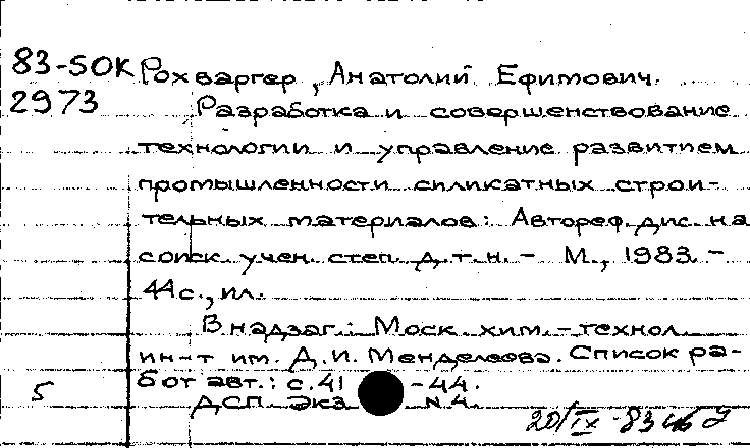 83-5ОК Рохваргер, Анатолий Ефимович.
2973 Разработка и совершенствование
технологии и управление развитием
промышленности силикатных строи-
тельных материалов: Автореф. дис. на
соиск. учен. степ. д.т.н. - М., 1983. -
44с., ил.
В надзаг.: Моск. хим.-технол.
ин-т им. Д.И. Менделеева. Список ра-
бот авт.: с.41 -44.
5 ДСП. Экз N4.
20/IX-83